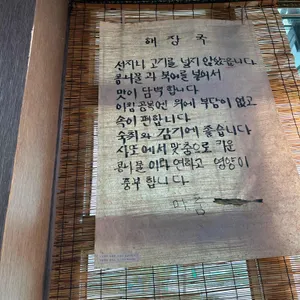 해장국
선지나 고기를 넣지 않았습니다
콩나물과 북어를 넣어서
맛이 담백합니다
아침 공복엔 위에 부담이 없고
속이 편합니다
숙취와 감기에 좋습니다
시또에서 맞춤으로 키운
콩나물이라 연하고 영양이
풍부합니다